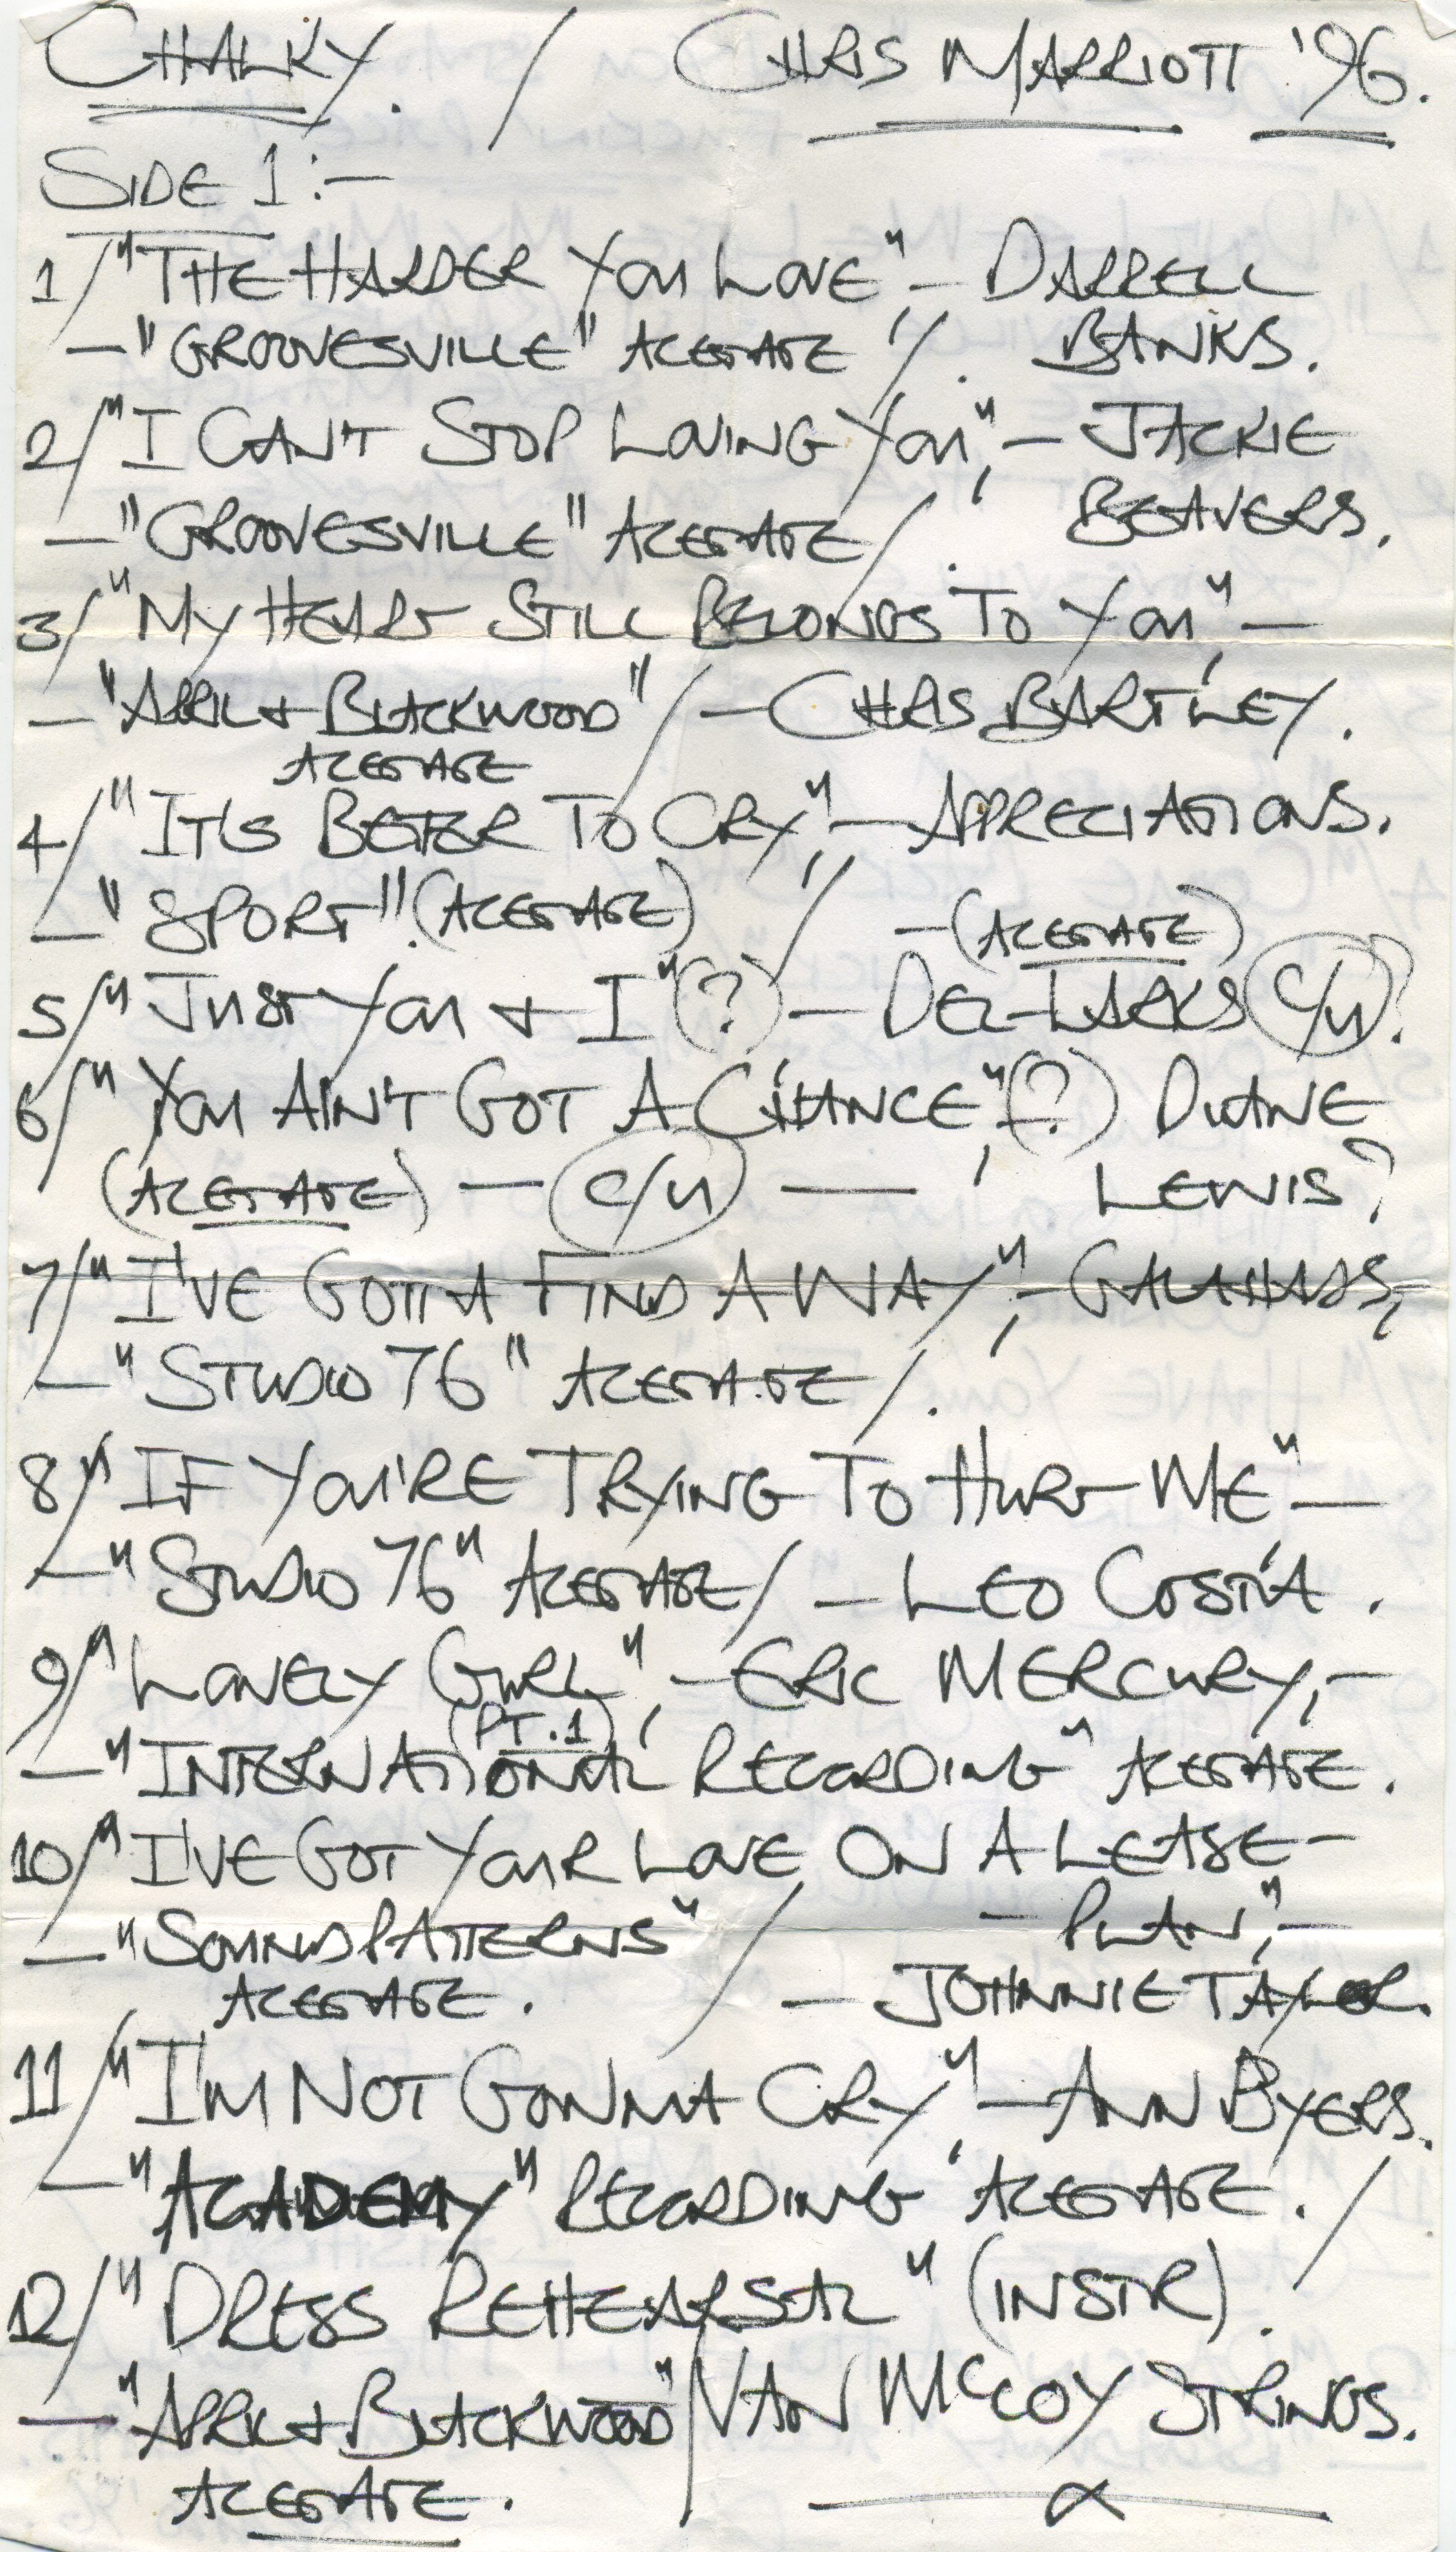 CHALKY. / CHRIS MARRIOTT '96.
SIDE 1:-
1/ "THE HARDER YOU LOVE", - DARRELL
- "GROOVESVILLE" ACETATE /. BANKS.
2/ "I CAN'T STOP LOVING YOU", - JACKIE
- "GROOVESVILLE" ACETATE /. BEAVERS.
3/ "MY HEART STILL BELONGS TO YOU", -
- "APRIL + BLACKWOOD" / - CHRIS BARTLEY.
ACETATE
4/ "IT'S BETTER TO CRY", - APPRECIATIONS.
- "SPORT". (ACETATE) / - (ACETATE)
5/ "JUST YOU + I" (?) - DEL-LARKS (C/U)?
6/ "YOU AIN'T GOT A CHANCE", (?) DWANE
(ACETATE) - (C/U) - LEWIS?
7/ "I'VE GOTTA FIND A WAY", - GALAHADS, -
- "STUDIO 76" ACETATE /.
8/ "IF YOU'RE TRYING TO HURT ME" -
- "STUDIO 76" ACETATE / - LEO COSTA.
9/ "LONELY GIRL", - ERIC MERCURY, -
(PT.1)
- "INTERNATIONAL RECORDING" ACETATE.
10/ "I'VE GOT YOUR LOVE ON A LEASE -
- "SOUND PATTERNS" / - PLAN", -
ACETATE. - JOHNNIE TAYLOR.
11/ "I'M NOT GONNA CRY", - ANN BYERS.
- "ACADEMY" RECORDING ACETATE. /
12/ "DRESS REHEARSAL" (INSTR).
- "APRIL + BLACKWOOD" / VAN McCOY STRINGS.
ACETATE.